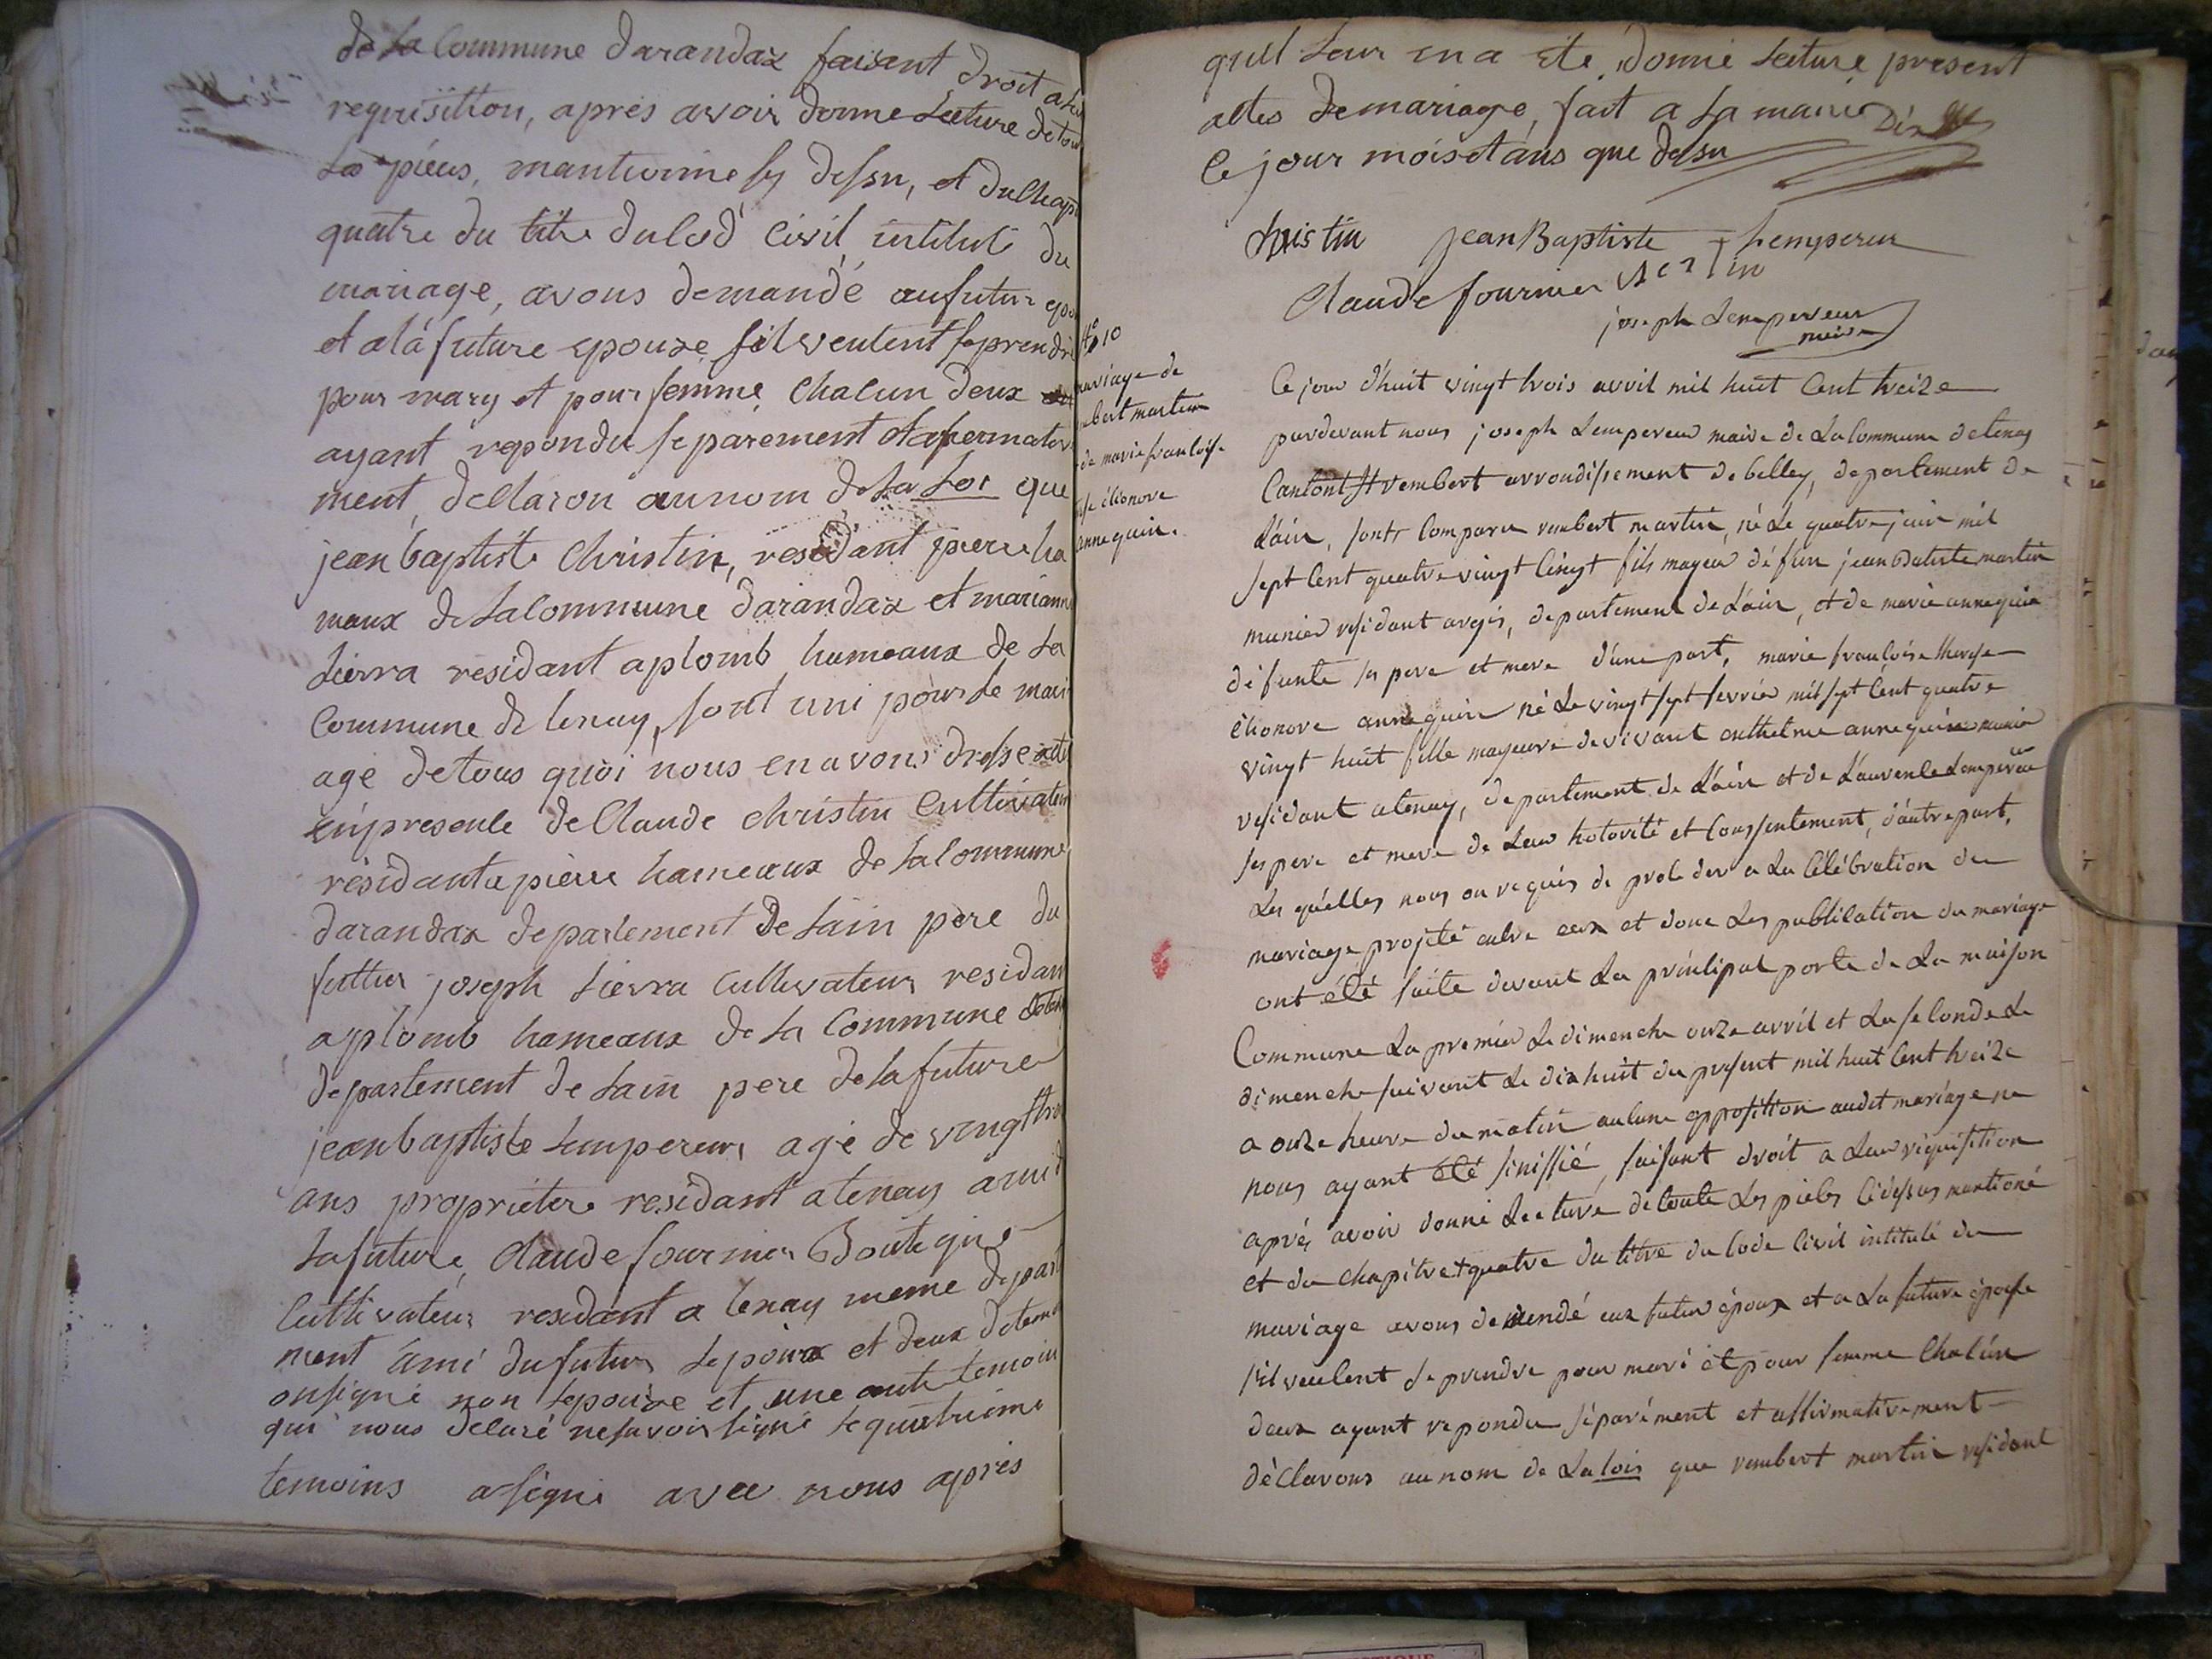 de La Commune darandax faisant droit a Leur
requisition, après avoir donne Lecture de tou
Les pieces, mantionne sy dessu, et du Chapi
quatre du titre du Cod Civil intitulé du
mariage, avons demandé au futur epou
et a la future epouze sil veulent se prendre
pour mary et pour femme, Chacun deux
ayant repondu separement et afermative
ment, declaron au nom de La Loi que
jean baptiste Christin, residant pierre ha
maux de La Commune darandax et marianne
Lierra residant aplomb hameaux de La
Commune de tenay, sont uni pour Le mari
age de tous quoi nous en avons dresse acte
en presence de Claude Christin Cultivateur
residant a pierre hameaux de La Commune
darandax departement de Lain pere du
futtur joseph Lierra Cultivateur residan
aplomb hameaux de La Commune de ten
departement de Lain pere de La future
jean baptiste Lempereur agé de vingt troi
ans proprietere residant a tenay ami d
La future, Claude fournier Boutequi
Cultivateur residant a tenay meme depart
ment ami du futur Lepoux et deux de temo
on signé non Lepouze et une autre temoin
qui nous déclaré ne savoir signé Le quatrieme
temoins a signé avec nous apres
qu'il Leur en a ete donné Lecture present
actes de mariage, fait a La mairie
Ce jour mois et ans que dessu
Christin jean Baptiste Lempereur
Claude fournier
joseph Lempereur
maire
N° 10
mariage de
mbert martin
de marie francoise
élionore
annequin.
Ce jour d'huit vingt trois avril mil huit Cent treize
pardevant nous joseph Lempereur maire de La Commune de tenay
Canton St rembert arrondissement de belley, departement de
L'ain, sont Comparu rambert martin, né Le quatre juin mil
sept Cent quatre vingt Cinqt fils mayeur défun jean Batiste martin
munier residant argis, departement de L'ain, et de marie annequin
défunte ses pere et mere d'une part, marie françoise therese
élionore annequin né Le vingt sept fevrier mil sept Cent quatre
vingt huit fille mayeure de vivant anthelme annequin munier
residant a tenay, departement de L'ain et de Laurence Lempereur
ses pere et mere de Leur hotorité et Conssentement, d'autre part,
Les quelles nous on requis de proceder a La Célébration du
mariage projeté entre eux et donc Les publication du mariage
ont été faite devant La principal porte de La maison
Commune La premier Le dimenche onze avril et La seConde Le
dimenche suivant Le dix huit du present mil huit Cent treize
a onze heure du matin auCune opposition audit mariage ne
nous ayant été sinissié, faisant droit a Leur requisition
après avoir donné Lecture de toute Les pieces Cidessus mantioné
et du chapitre quatre du titre du Code Civil intitulé du
mariage avons demendé aux futur époux et a La future épouse
s'il veulent se prendre pour mari et pour femme ChaCun
deux ayant repondu séparément et affirmativement
déClarons au nom de La lois que rambert martin residant